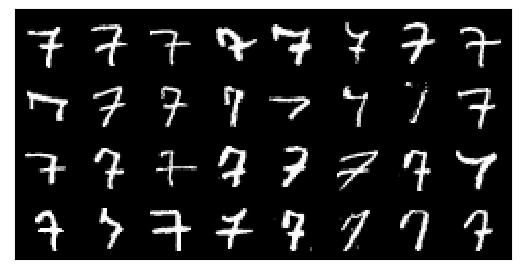 7 7 7 7 7 7 7 7
7 7 7 7 7 7 7
7 7 7 7 7 7 7
7 7 7 7 7 7 7